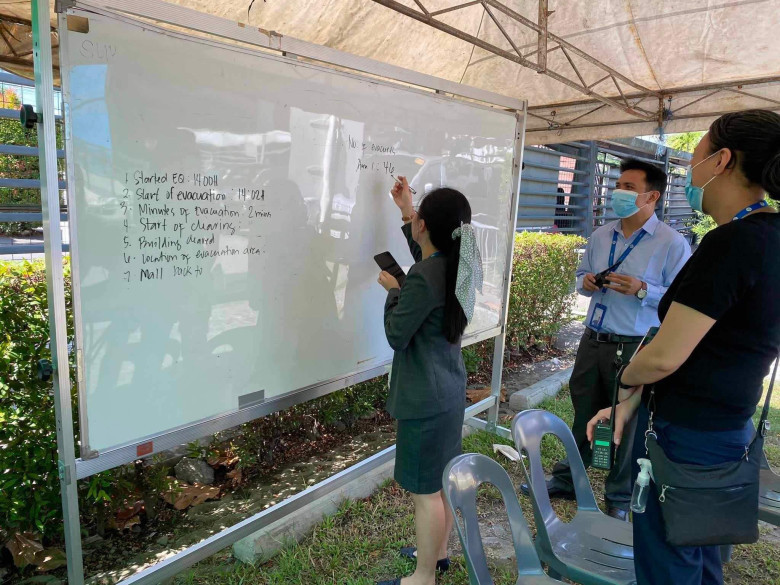 1 Started EQ : 1400H
2 Start of evacuation : 14:02H
3. Minutes of Evacuation : 2 mins
4 Start of clearing :
5 Building cleared
6. Location of evacuation area :
7 Mall back to
Area 1 - 46